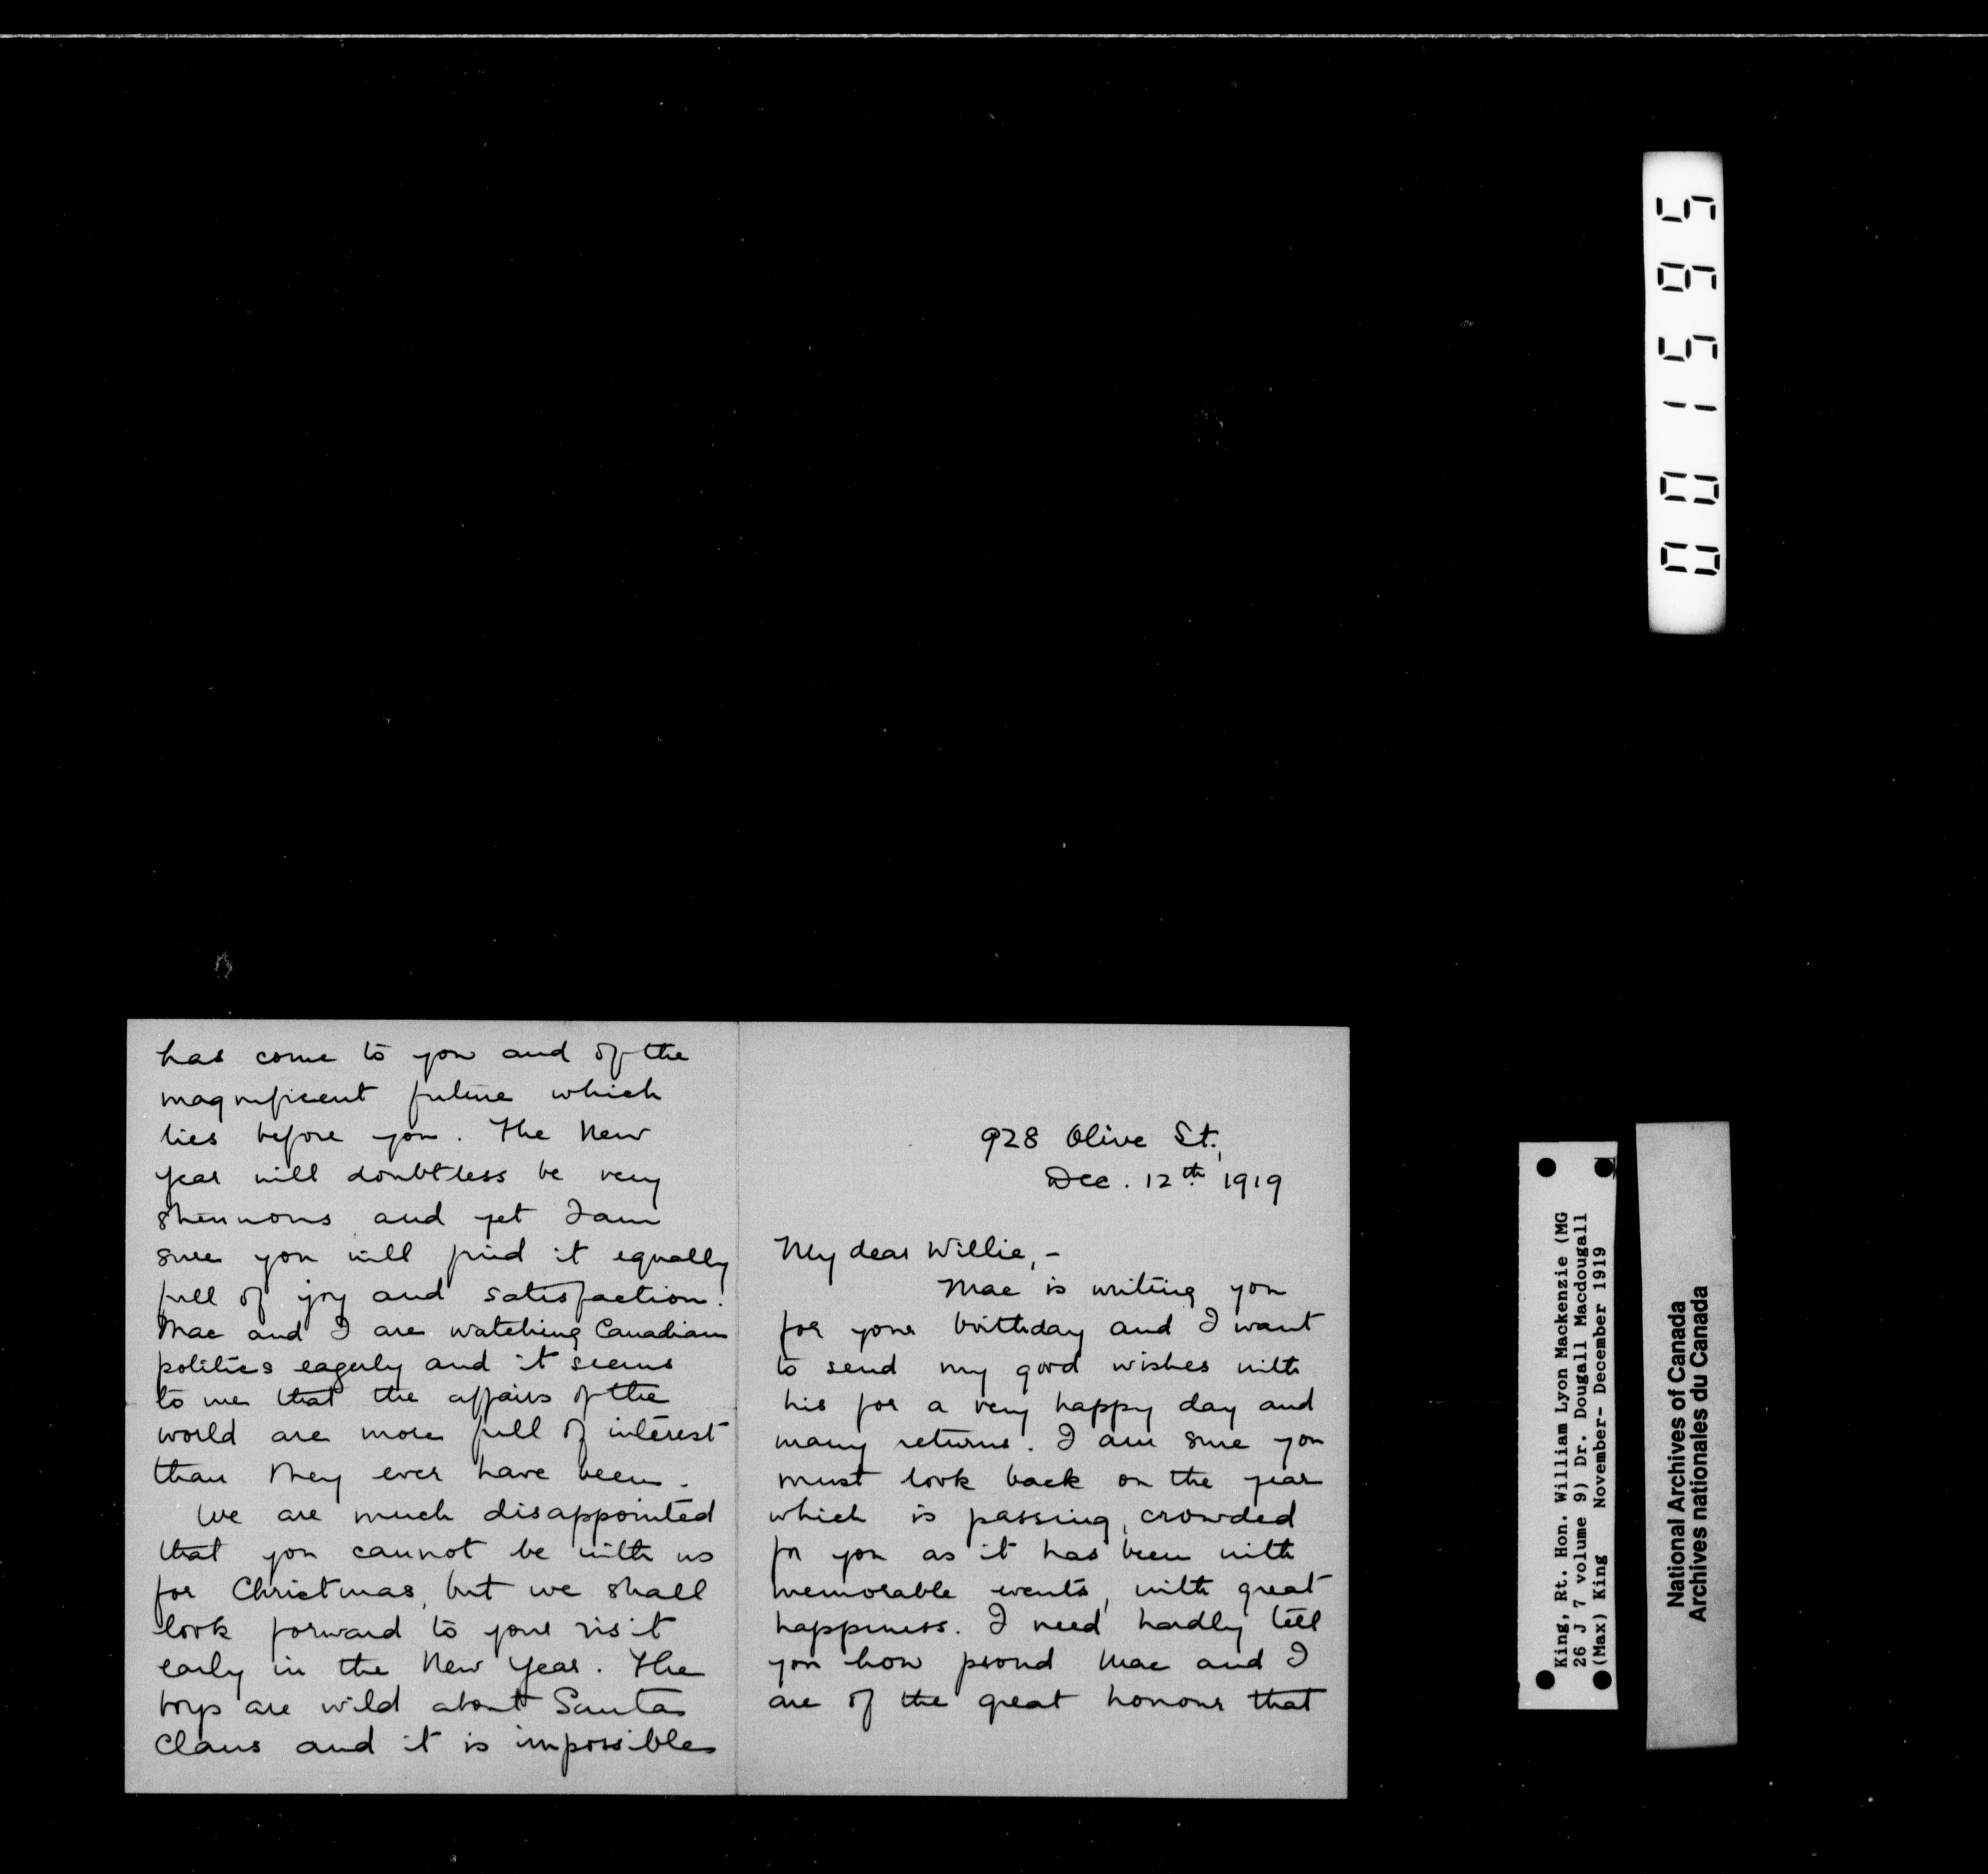 928 Olive St.,
Dec. 12th 1919
My dear Willie,-
Mac is writing you
for your birthday and I want
to send my good wishes with
his for a very happy day and
many returns. I am sure you
must look back on the year
which is passing, crowded
for you as it has been with
memorable events, with great
happiness. I need hardly tell
you how proud Mac and I
are of the great honour that
has come to you and of the
magnificent future which
lies before you. The New
Year will doubtless be very
strenuous and yet I am
sure you will find it equally
full of joy and satisfaction.
Mac and I are watching Canadian
politics eagerly and it seems
to me that the affairs of the
world are more full of interest
than they ever have been.
We are much disappointed
that you cannot be with us
for Christmas, but we shall
look forward to your visit
early in the New Year. The
boys are wild about Santa
Claus and it is impossible
565100
King, Rt. Hon. William Lyon Mackenzie (MG
26 J 7 volume 9) Dr. Dougall Macdougall
(Max) King November- December 1919
National Archives of Canada
Archives nationales du Canada